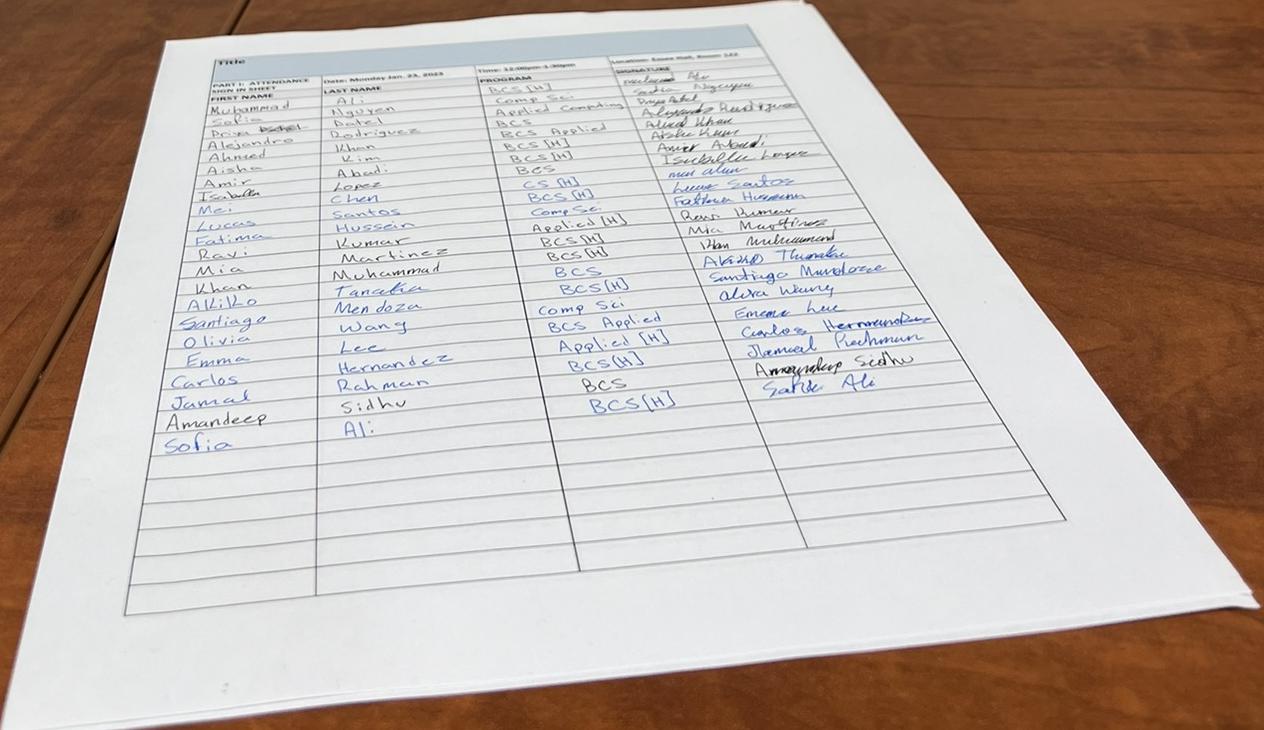 Title
PART I: ATTENDANCE SIGN IN SHEET Date: Monday Jan. 23, 2023 Time: 12:00pm-1:30pm Location: Essex Hall, Room 122
FIRST NAME LAST NAME PROGRAM SIGNATURE
Muhammad Ali BCS [H] Ali
Sofia Nguyen Comp Sci Sofia Nguyen
Priya Patel Applied Computing Priya Patel
Alejandro Rodriguez BCS Alejandro Rodriguez
Ahmed Khan BCS Applied Ahmed Khan
Aisha Kim BCS [H] Aisha Kim
Amir Abadi BCS [H] Amir Abadi
Isabella Lopez BCS Isabella Lopez
Mei Chen CS [H]
Lucas Santos BCS [H] Lucas Santos
Fatima Hussein Comp Sci Fatima Hussein
Ravi Kumar Applied [H] Ravi Kumar
Mia Martinez BCS [H] Mia Martinez
Khan Muhammad BCS [H] Khan Muhammad
Akiko Tanaka BCS Akiko
Santiago Mendoza BCS [H] Santiago Mendoza
Olivia Wang Comp Sci Wang
Emma Lee BCS Applied Emma Lee
Carlos Hernandez Applied [H] Carlos Hernandez
Jamal Rahman BCS [H] Jamal Rahman
Amandeep Sidhu BCS Amandeep Sidhu
Sofia Ali BCS [H] Ali